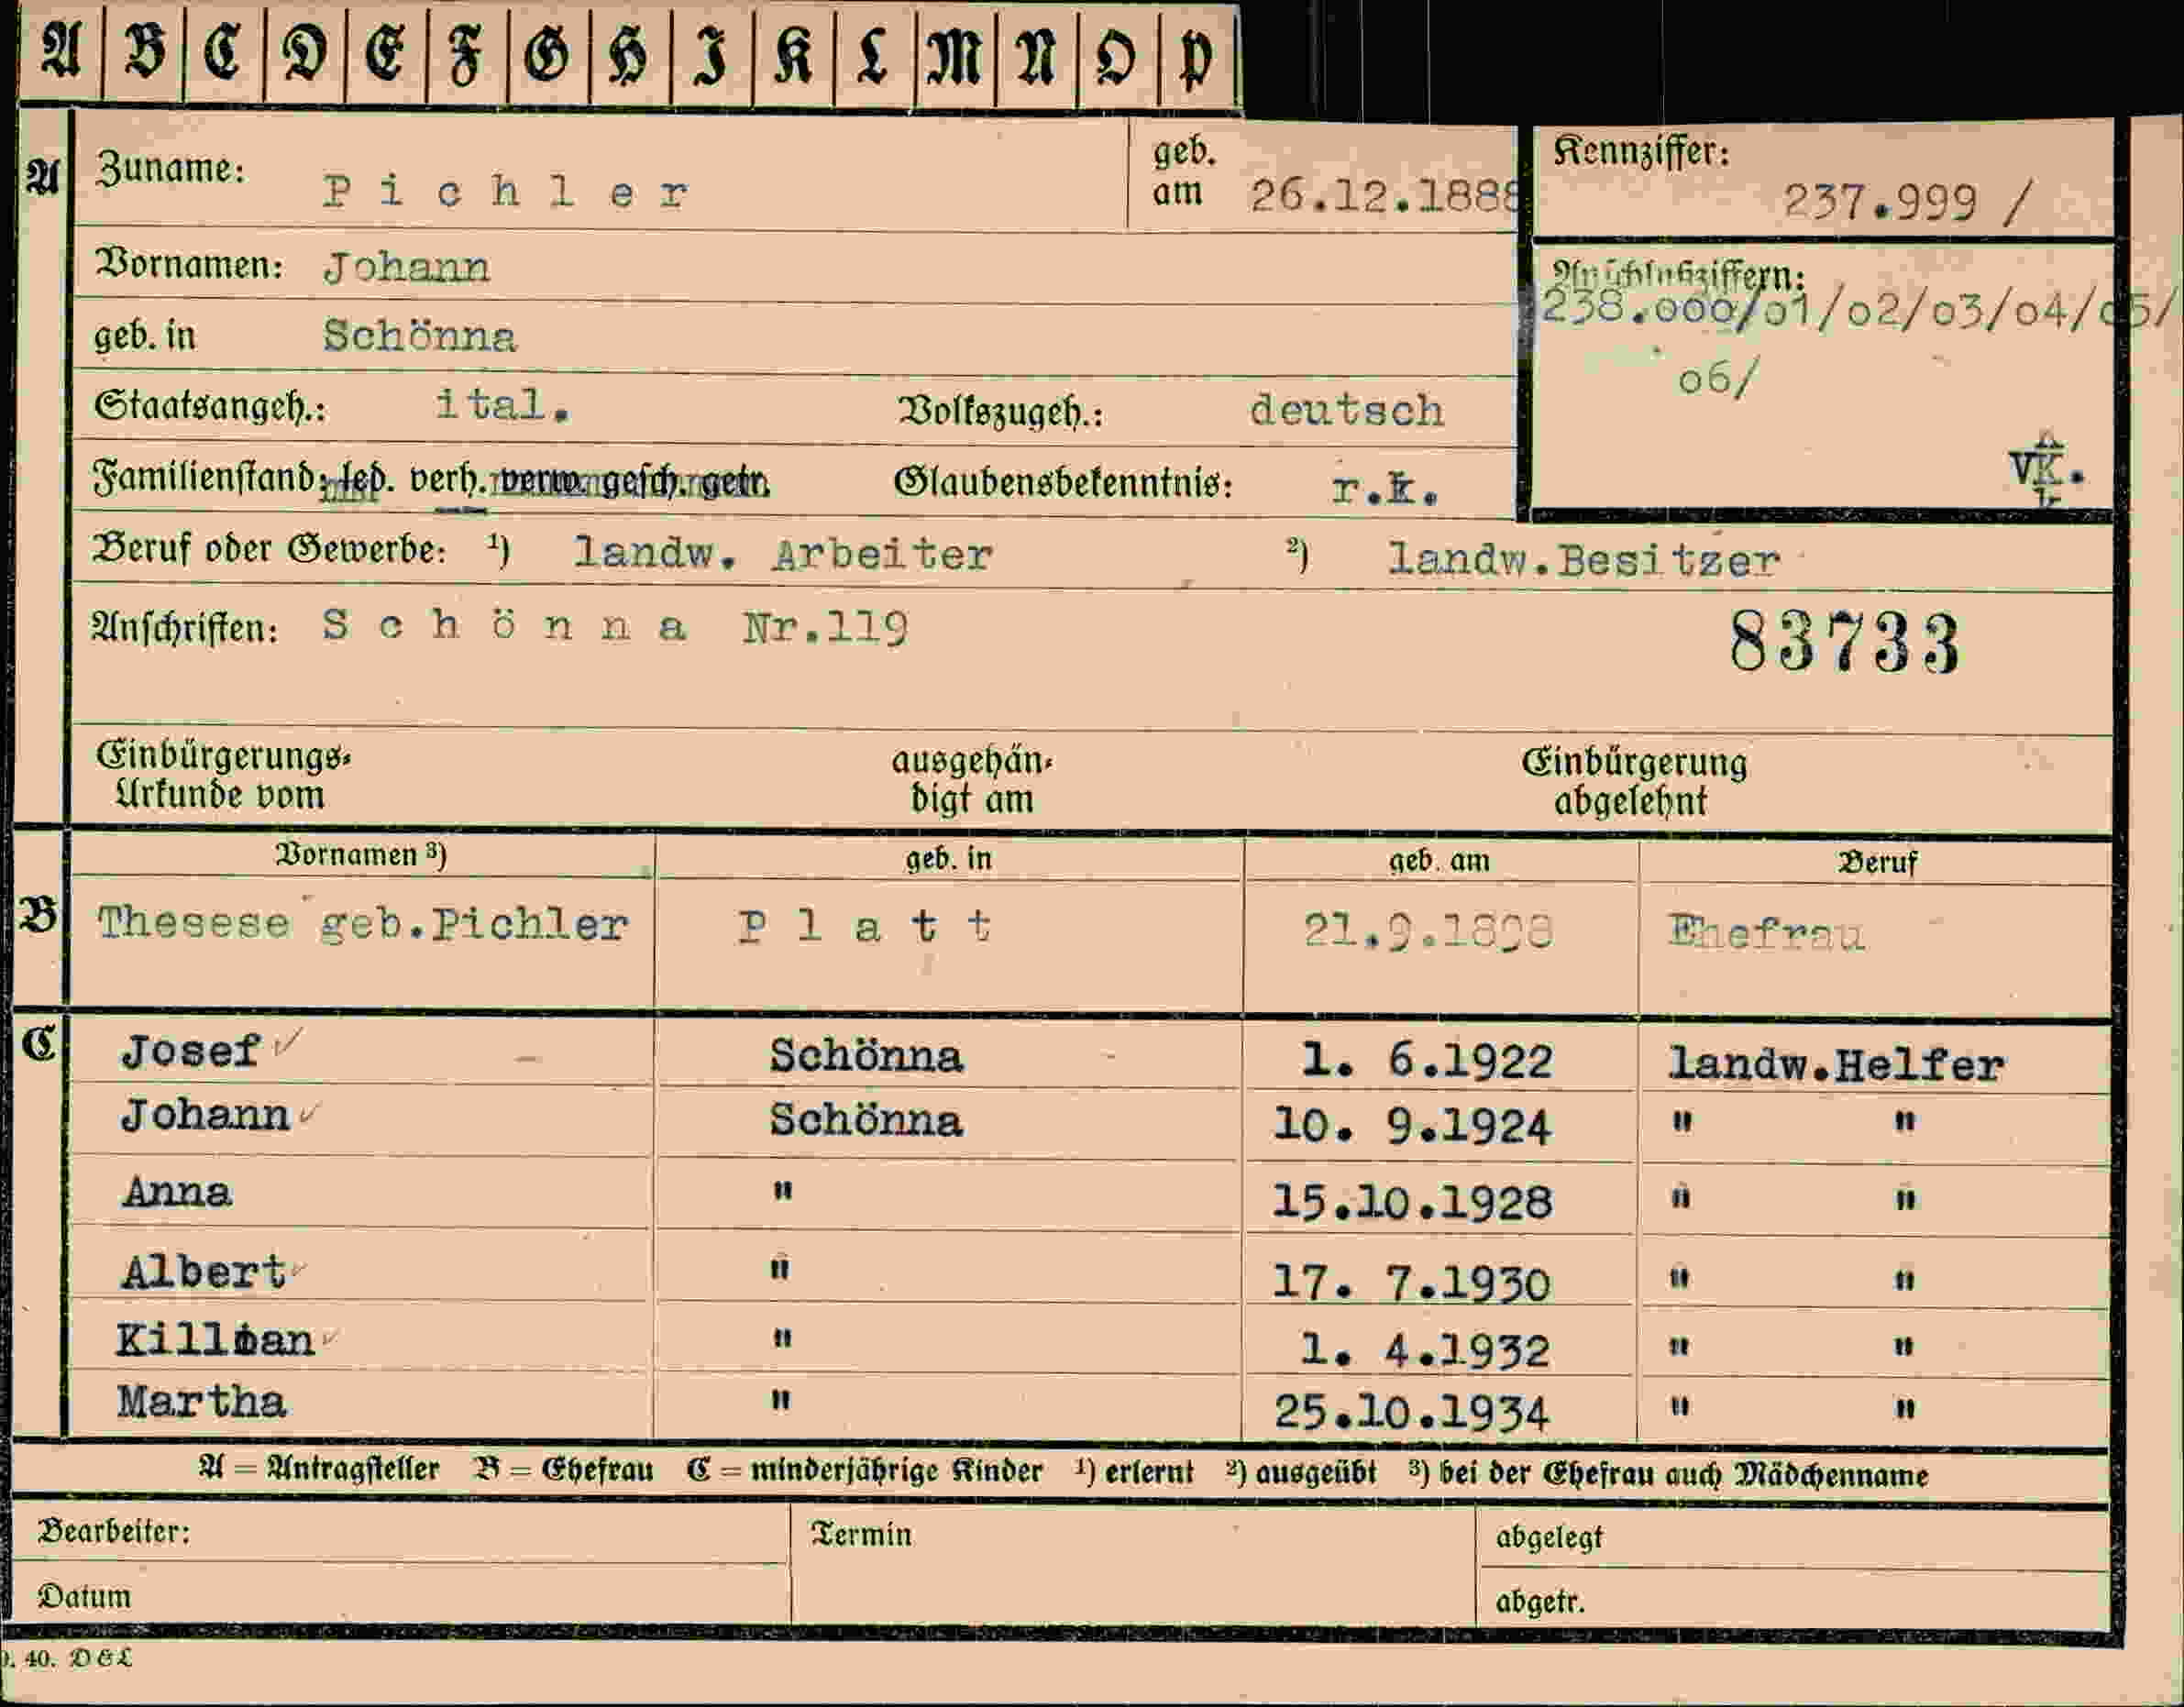 A B C D E F G H I K L M N O P
A Zuname: Pichler geb. am 26.12.1888
Kennziffer: 237.999 /
Vornamen: Johann
Anschlußziffern: 238.000/01/02/03/04/05/
06/
geb. in Schönna
Staatsangeh.: ital. Volkszugeh.: deutsch
Familienstand: led. verh. verw. gesch. getr. Glaubensbekenntnis: r.k.
VK.
Beruf oder Gewerbe: ¹) landw. Arbeiter ²) landw.Besitzer
Anschriften: Schönna Nr.119
83733
Einbürgerungs- ausgehän- Einbürgerung
Urkunde vom digt am abgelehnt
Vornamen ³) geb. in geb. am Beruf
B Thesese geb.Pichler Platt 21.9.1898 Ehefrau
C Josef Schönna 1. 6.1922 landw.Helfer
Johann Schönna 10. 9.1924 " "
Anna " 15.10.1928 " "
Albert " 17. 7.1930 " "
" 1. 4.1932 " "
Martha " 25.10.1934 " "
A = Antragsteller B = Ehefrau C = minderjährige Kinder ¹) erlernt ²) ausgeübt ³) bei der Ehefrau auch Mädchenname
Bearbeiter: Termin abgelegt
Datum abgetr.
40. D&L